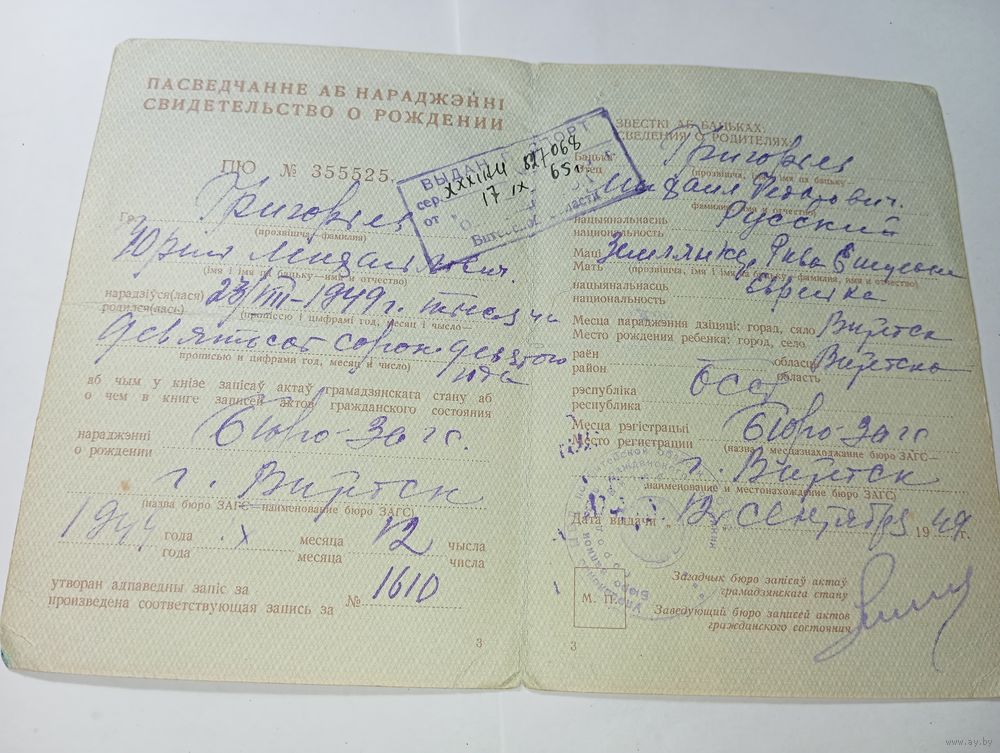 ПАСВЕДЧАННЕ АБ НАРАДЖЭННІ
СВИДЕТЕЛЬСТВО О РОЖДЕНИИ
ПЮ № 355525
Гр.
Григорьев
(прозвішча—фамилия)
Юрий Михайлович
(імя і імя па бацьку—имя и отчество)
нарадзіўся(лася)
родился(лась)
23/VIII-1949 г. тысяча
(прописсю і цыфрамі год, месяц і число—
девятьсот сорок девятого
прописью и цифрами год, месяц и число)
года
аб чым у кнізе запісаў актаў грамадзянскага стану аб
о чем в книге записей актов гражданского состояния
нараджэнні
о рождении
бюро-Загс.
г. Витебск
(назва бюро ЗАГС—наименование бюро ЗАГС)
года IX месяца 12 чысла
года месяца числа
утворан адпаведны запіс за
произведена соответствующая запись за
№ 1610
3
ВЫДАН
сер. 527068
от 17 IX 65 г.
Витебской области
ЗВЕСТКІ АБ БАЦЬКАХ:
СВЕДЕНИЯ О РОДИТЕЛЯХ:
Бацька
Отец
Григорьев
(прозвішча, імя і імя па бацьку—
Михаил Федорович.
фамилия, имя и отчество)
нацыянальнасць
национальность
Русский
Маці
Мать
(прозвішча, імя і імя па бацьку—фамилия, имя и отчество)
нацыянальнасць
национальность
Еврейка
Месца нараджэння дзіцяці: горад, сяло
Место рождения ребенка: город, село
Витебск
раён
район
область
область
Витебская
рэспубліка
республика
БССР
Месца рэгістрацыі
Место регистрации
бюро-Загс
(назва і месцазнаходжанне бюро ЗАГС—
г. Витебск
наименование и местонахождение бюро ЗАГС)
Дата выдачи „12„ сентября 1949 г.
М. П.
Загадчык бюро запісаў актаў
грамадзянскага стану
Заведующий бюро записей актов
гражданского состояния
3
www.ay.by